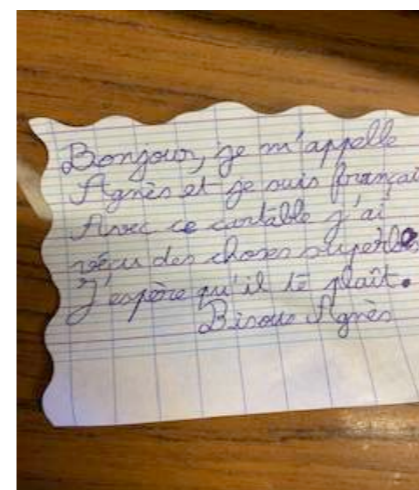 Bonjour, je m'appelle
Agnès et je suis françai
Avec ce cartable j'ai
vécu des choses superbes
J'espère qu'il te plaît.
Bisous Agnès